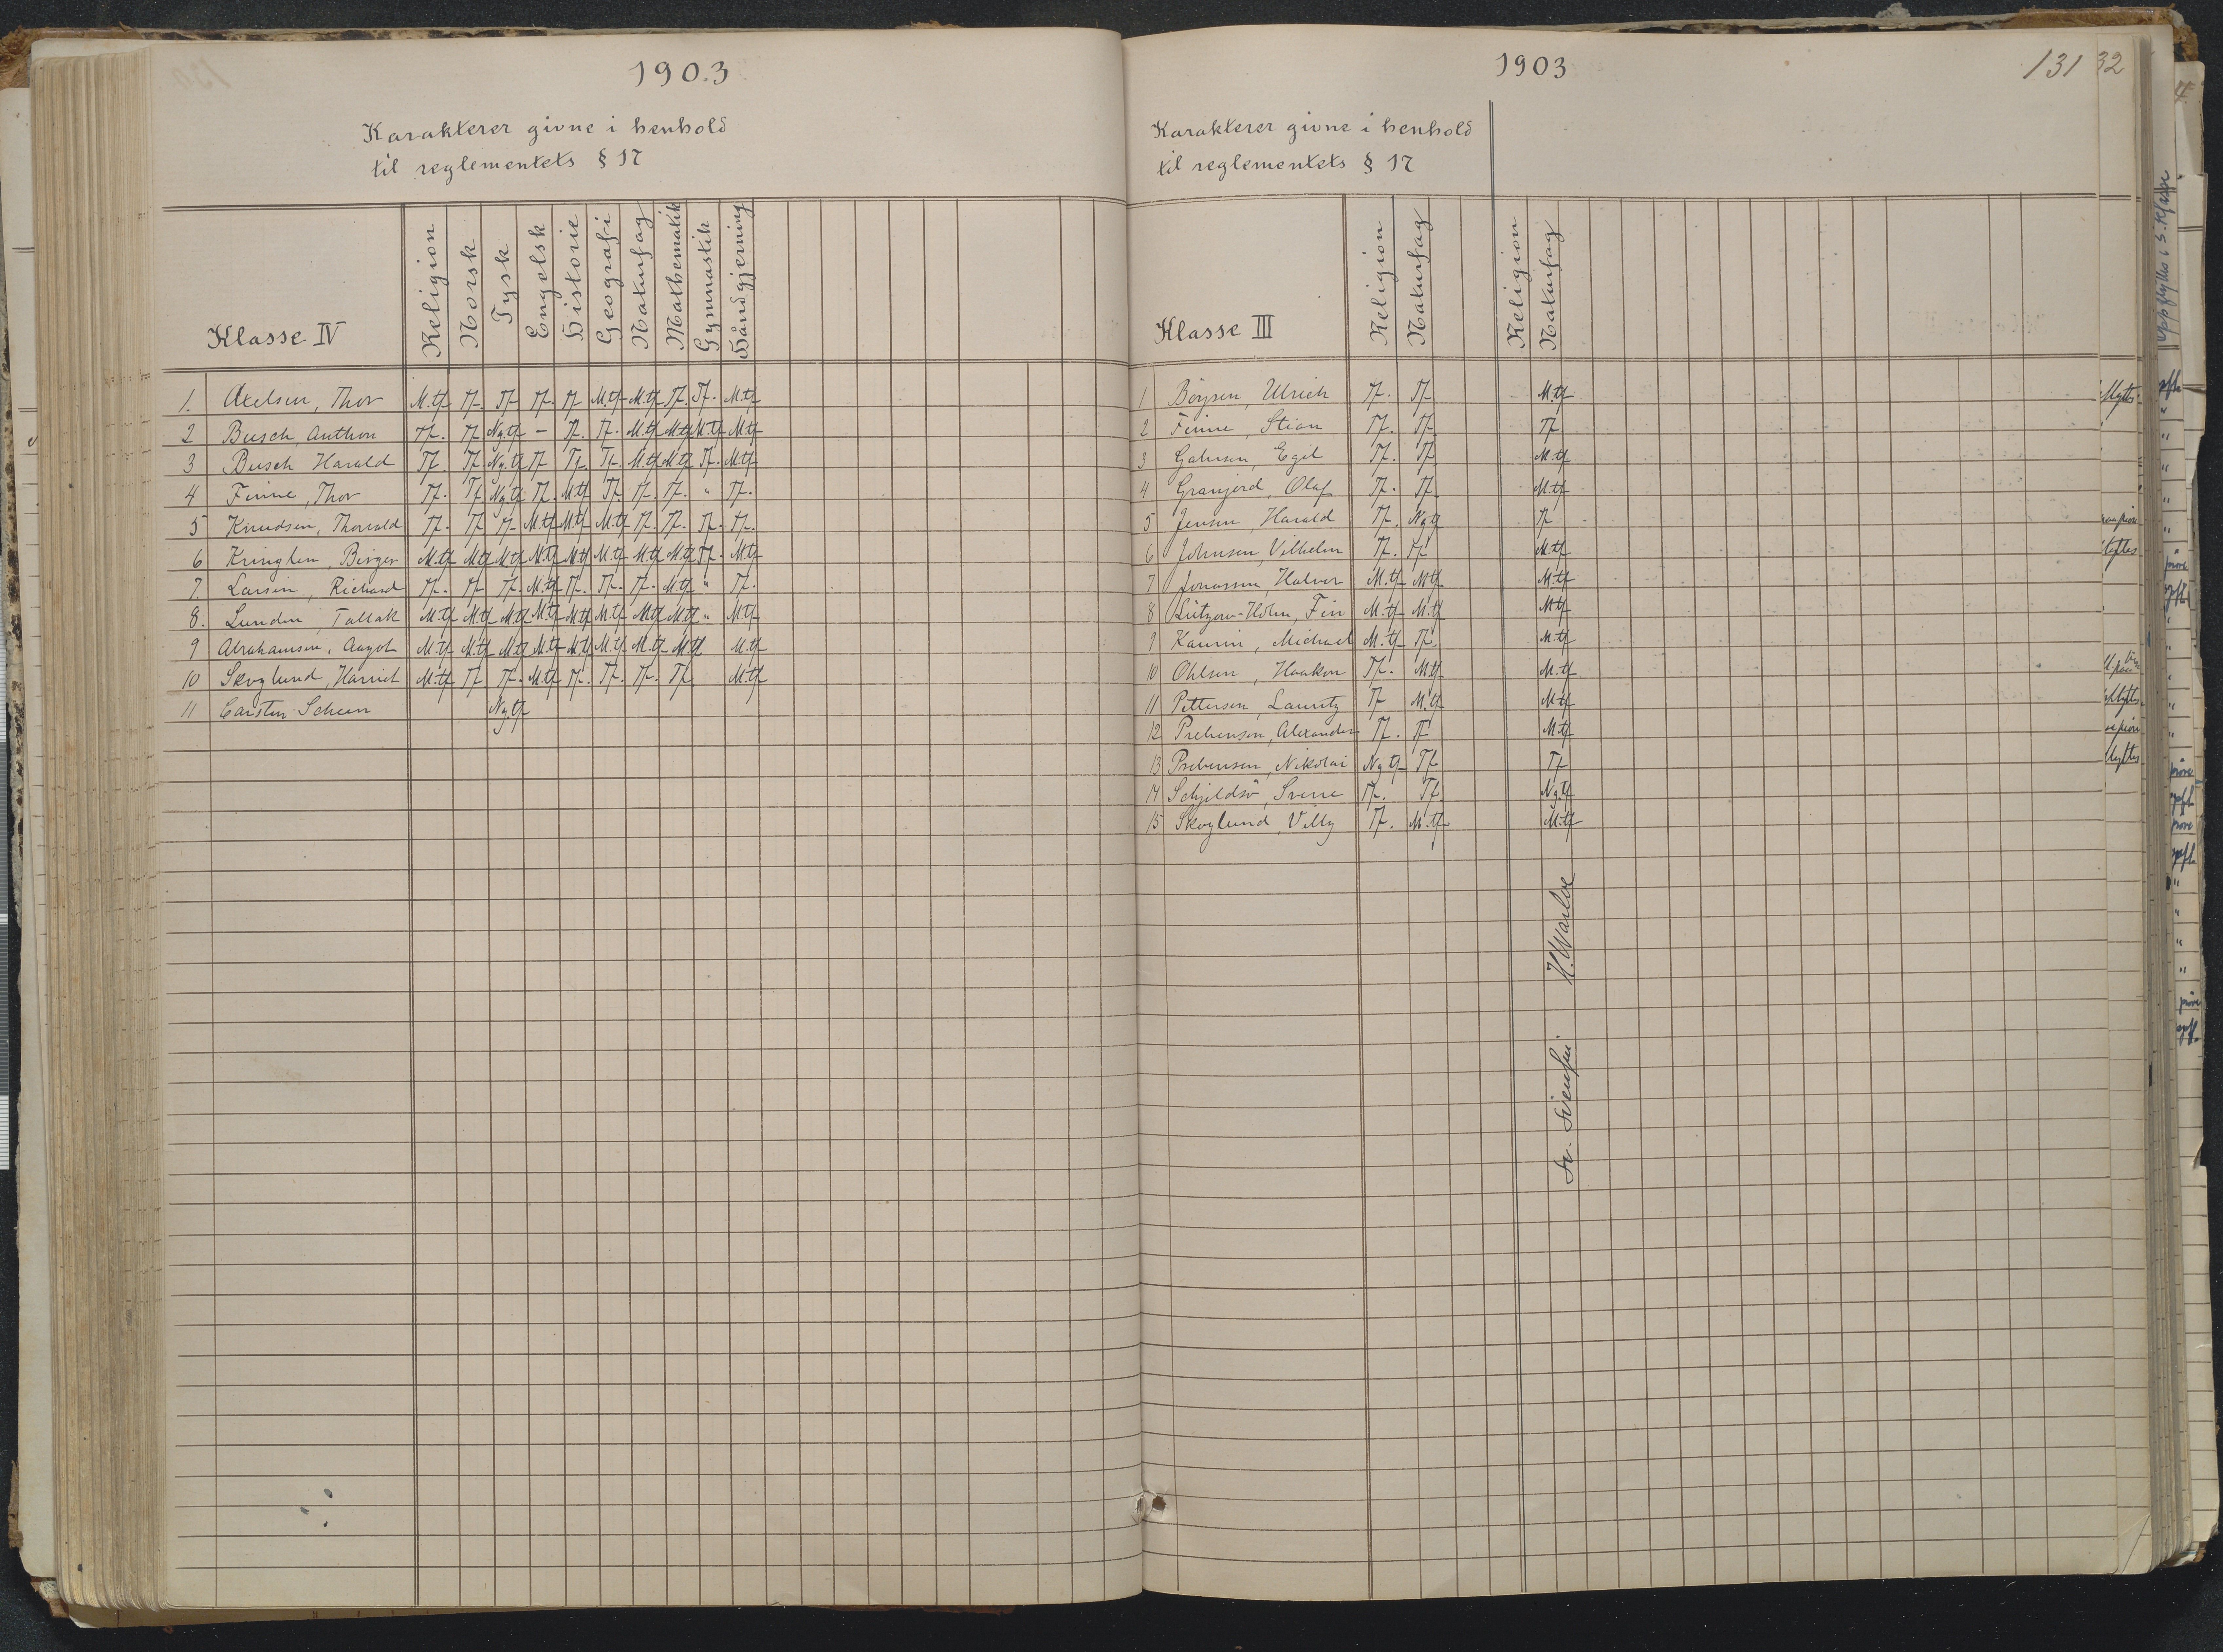 1903
Karakterer givne i henhold
til reglementets § 17
Klasse IV Religion Norsk Tysk Engelsk Historie Geografi Naturfag Mathematik Gymnastik Håndgjerning
1. Axelsen, Thor M.tf Tf. Tf Tf. Tf M.tf M.tf Tf. Tf. M.tf
2 Busch, Anthon Tf. Tf Ng.tf – Tf. Tf. M.tf M.tf M.tf M.tf
3 Busch Harald Tf. Tf. Ng.tf Tf Tf. Tf. M.tf M.tf Tf. M.tf
4 Finne, Thor Tf. Tf Ng.tf Tf. M.tf Tf Tf. Tf. " Tf.
5 Knudsen, Thorvald Tf. Tf Tf. M.tf M.tf M.tf Tf. Tf. Tf. Tf.
6 Kringlen, Birger M.tf M.tf M.tf M.tf M.tf M.tf M.tf M.tf Tf. M.tf
7. Larsen, Richard Tf. Tf Tf. M.tf Tf. Tf. Tf. M.tf " Tf.
8. Lunden, Tallak M.tf M.tf M.tf M.tf M.tf M.tf M.tf M.tf " M.tf
9 Abrahamsen, Aagot M.tf M.tf M.tf M.tf M.tf M.tf M.tf M.tf M.tf
10 Skoglund, Harriet M.tf Tf. Tf. M.tf Tf. Tf. Tf. Tf M.tf
11 Carsten Scheen Ng.tf
1903
131
32
Karakterer givne i henhold
til reglementets § 17
Klasse III Religion Naturfag Religion Naturfag
1 Böysen, Ulrich Tf. Tf M.tf
2 Finne, Stian Tf. Tf. Tf
3 Egil Tf. Tf. M.tf
4 Granjerd, Olaf Tf. Tf. M.tf
5 Jensen, Harald Tf. Ng.tf Tf
6 Johnsen, Vilhelm Tf. Tf M.tf
7 Jonassen, Halvor M.tf M.tf M.tf
8 Lützow-Holm, Fin M.tf M.tf M.tf
9 Michael M.tf Tf. M.tf
10 Ohlsen, Haakon Tf. M.tf M.tf
11 Pettersen, Lauritz Tf M.tf M.tf
12 Prebensen, Alexander Tf. Tf M.tf
13 Prebensen, Nikolai Ng.tf Tf Tf
14 Schjeldsö, Sverre Tf. Tf. Ng.tf
15 Skoglund, Villy Tf. M.tf M.tf